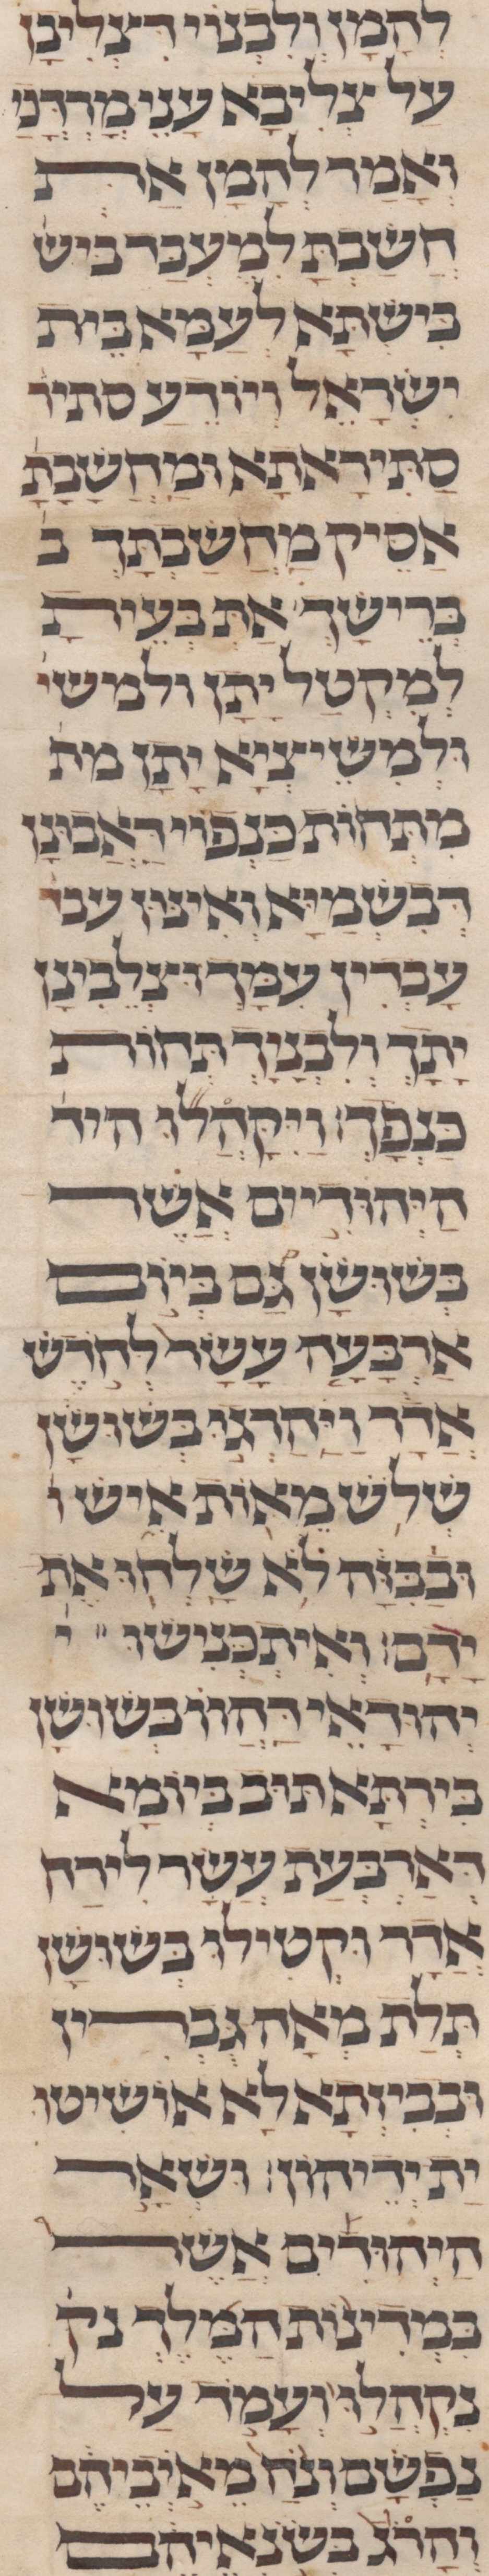 לְהָמָן וְלִבְנוֹי דִּצְלִיבִין
עַל צְלִיבָא עָנֵי מָרְדֳּכַי
וְאָמַר לְהָמָן אַתְּ
חֲשַׁבְתָּ לְמֶעְבַּד בִּישׁ
בִּישְׁתָּא לְעַמָּא בֵּית
יִשְׂרָאֵל וְיוֹדֵעַ סתיר
סְתִירָאתָא וּמַחְשַׁבְתָּ
אַסֵּיק מַחְשַׁבְתָּךְ ב
בְּרֵישָׁךְ אַתְּ בְּעֵיתָ
לְמִקְטַל יָתָן ולמשי
וּלְמֵשֵׁיצְיָא יָתָן מת
מִתְּחוֹת כַּנְפוֹי דַּאֲבוּנָן
דְּבִשְׁמַיָּא וְאִינּוּן עבד
עָבְדִין עִמָּךְ וּצְלֵבִינָן
יָתָךְ וְלִבְנָךְ תְּחוֹת
כַּנְפָךְ׃ וַיִּקָּהֲלוּ היד
הַיְּהוּדִיִּים אֲשֶׁר
בְּשׁוּשָׁן גַּם בְּיוֹם
אַרְבָּעָה עָשָׂר לְחֹדֶשׁ
אֲדָר וַיַּהַרְגוּ בְשׁוּשָׁן
שְׁלֹשׁ מֵאוֹת אִישׁ ו
וּבַבִּזָּה לֹא שָׁלְחוּ אֶת
יָדָם׃ וְאִיתְכְּנִישׁוּ י
יְהוּדָאֵי דַּהֲווֹ בְּשׁוּשָׁן
בִּירְתָּא תּוּב בְּיוֹמָא
דְּאַרְבְּעַת עֲשַׂר לְיֶרַח
אֲדָר וּקְטִילוּ בְּשׁוּשָׁן
תְּלָת מְאָה גֻּבְרִין
וּבְבִיזְתָא לָא אוֹשִׁיטוּ
יָת יְדֵיהוֹן׃ וּשְׁאָר
הַיְּהוּדִים אֲשֶׁר
בִּמְדִינוֹת הַמֶּלֶךְ נק
נִקְהֲלוּ וְעָמֹד עַל
נַפְשָׁם וְנֹחַ מֵאוֹיְבֵיהֶם
וְהָרֹג בשנאיהם